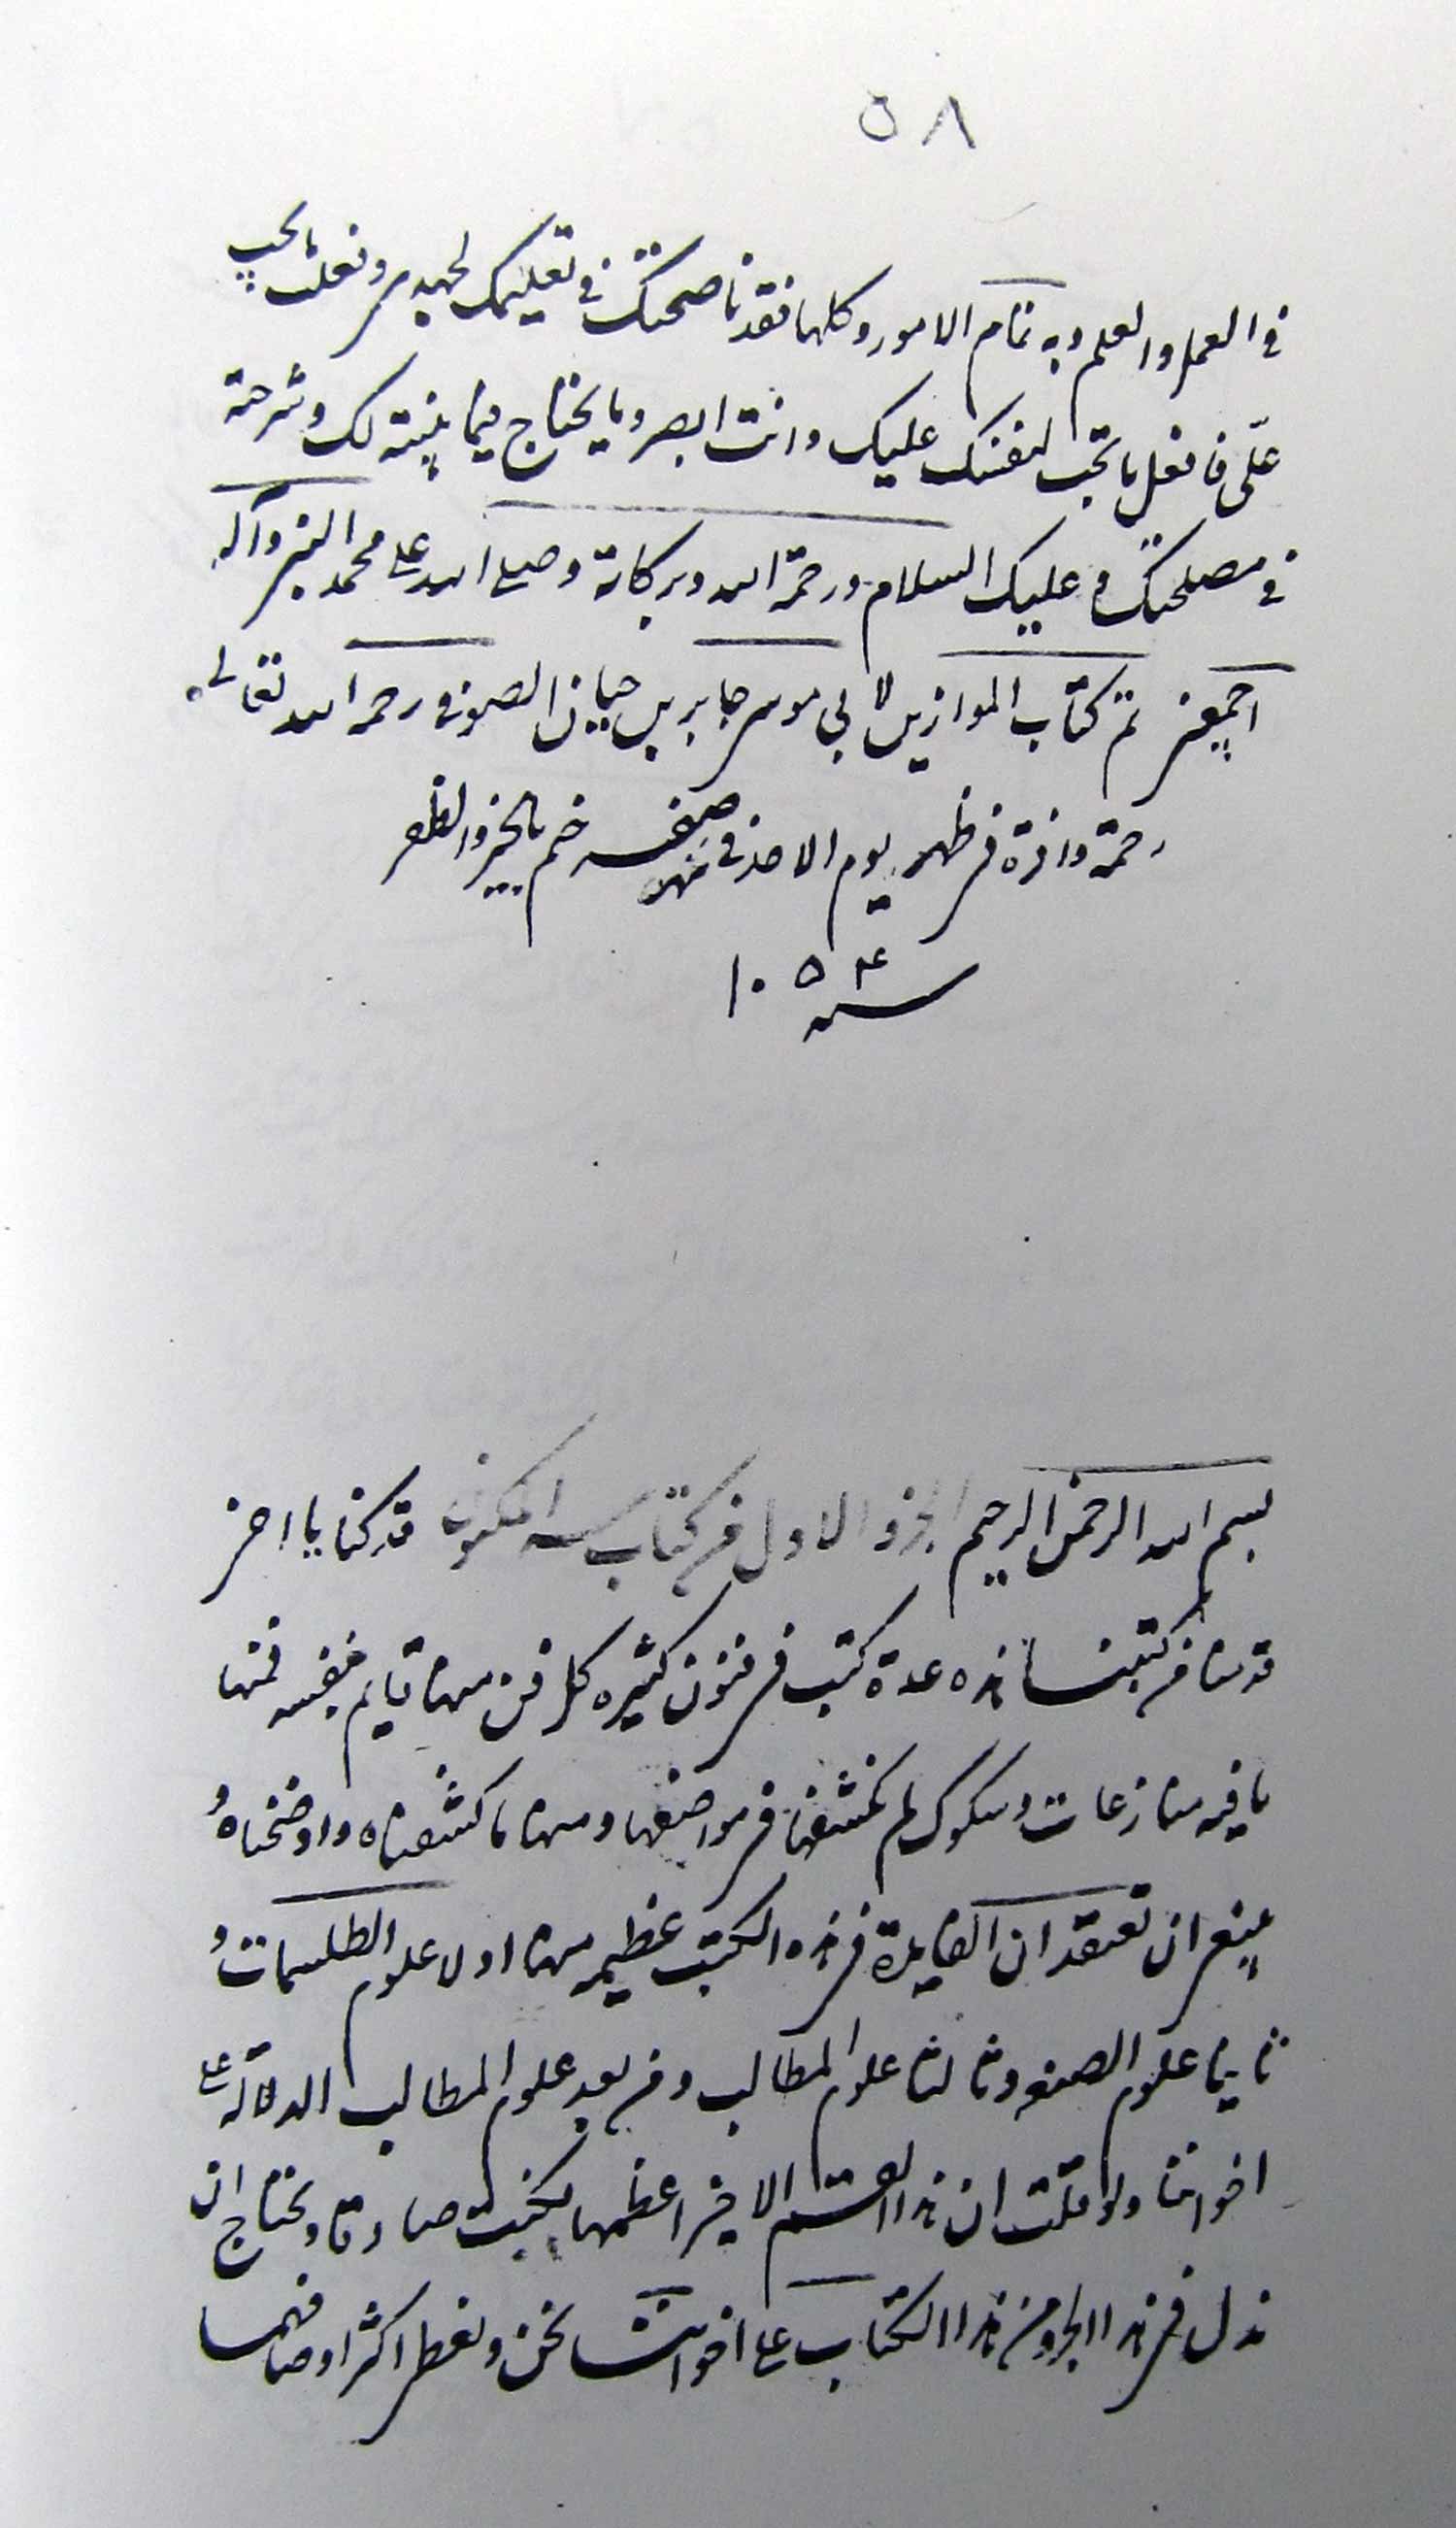 ٥٨
في العمل والعلم وبه تمام الامور وكلها فقد ناصحتك في تعليمك لجهدي وفعلت ما يجب
علّى فافعل ما يجب لنفسك عليك وانت ابصر وما يحتاج فيما بينته لك وشرحته
في مصلحتك وعليك السلام ورحمة الله وبركاته وصلى الله على محمد النبي وآله
اجمعين تم كتاب الموازين لابي موسى جابر بن حيان الصوفي رحمه الله تعالى
رحمة وافرة في ظهر يوم الاحد في شهر صفر ختم بالخير والظفر
سنه ١٠٥٤
بسم الله الرحمن الرحيم الجزو الاول من كتاب سر المكنون قد كنا يا اخي
قدمنا من كتبنا هذه عدة كتب في فنون كثيره كل فن منها قايم بنفسه فمنها
ما فيه منازعات وشكوك لم نكشفها في مواضعها ومنها ما كشفناه واوضحناه و
ينبغي ان تعتقد ان الفايدة في هذه الكتب عظيمه منها اولا علوم الطلسمات و
ثانيا علوم الصنعه وثالثا علوم المطالب ومن بعد علوم المطالب الدلالة على
اخواننا ولو قلت ان هذا القسم الاخير اعظمها لكنت صادقا ونحتاج ان
ندل في هذا الجزو من هذا الكتاب على اخواننا نحن ونعطى اكثر اوصافهما